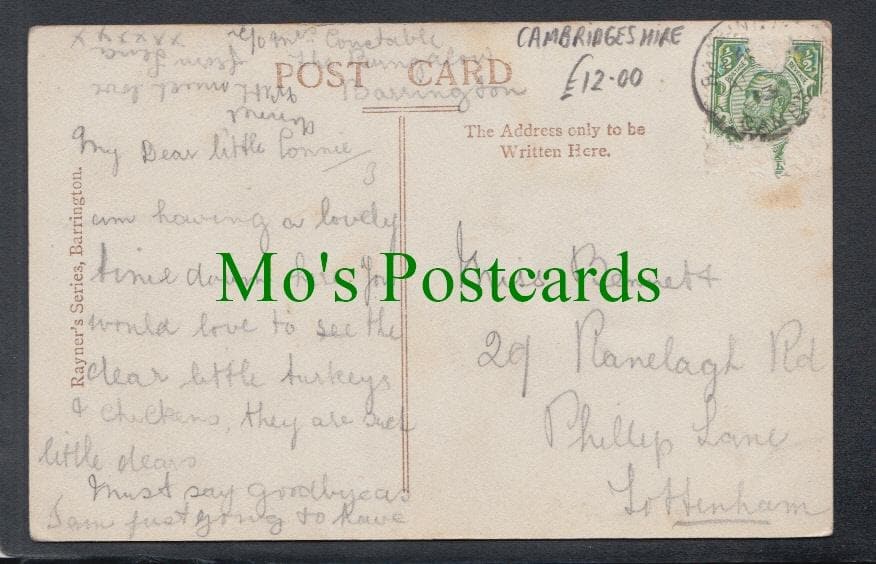 c/o Mrs Constable
The Bungalow
Barrington
CAMBRIDGESHIRE
£12-00
POST CARD
The Address only to be
Written Here.
My Dear little Connie
I
am having a lovely
time down here You
would love to see the
dear little turkeys
& chickens, they are such
little dears
Must say goodbye as
I am just going to have
dinner
With much love
from Lena
xxxx x
Miss Bennett
29 Ranelagh Rd
Phillip Lane
Tottenham
Rayner's Series, Barrington.
Mo's Postcards